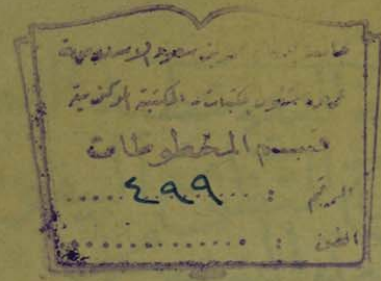 جامعة الإمام محمد بن سعود الإسلامية
عمادة شئون المكتبات المكتبة المركزية
قسم المخطوطات
الرقم : ٤٩٩
الفن :